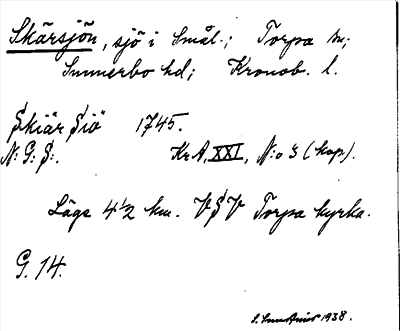 Skärsjön, sjö i Smål.; Torpa sn;
Sunnerbo hd; Kronob. l.
Skiär Siö 1745.
N: G: S:.
KrA, XXI, N:o 3 (kop).
Läge 4 1/2 km. VSV Torpa kyrka.
G. 14.
1938.